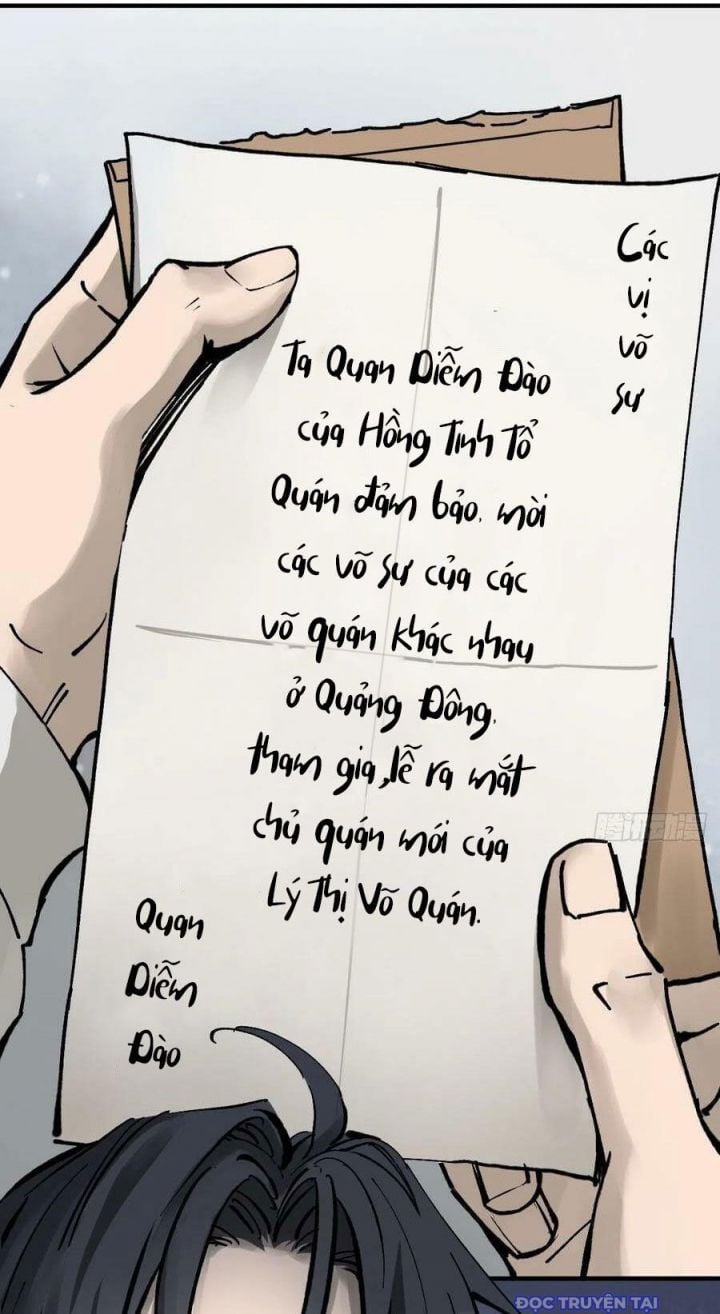 Các
vị
võ
sư
Ta Quan Diễm Đào
của Hồng Tinh Tổ
Quán đảm bảo, mời
các võ sư của các
võ quán khác nhau
ở Quảng Đông,
tham gia, lễ ra mắt
chủ quán mới của
Lý Thị Võ Quán.
Quan
Diễm
Đào
腾讯动漫
ĐỌC TRUYỆN TẠI